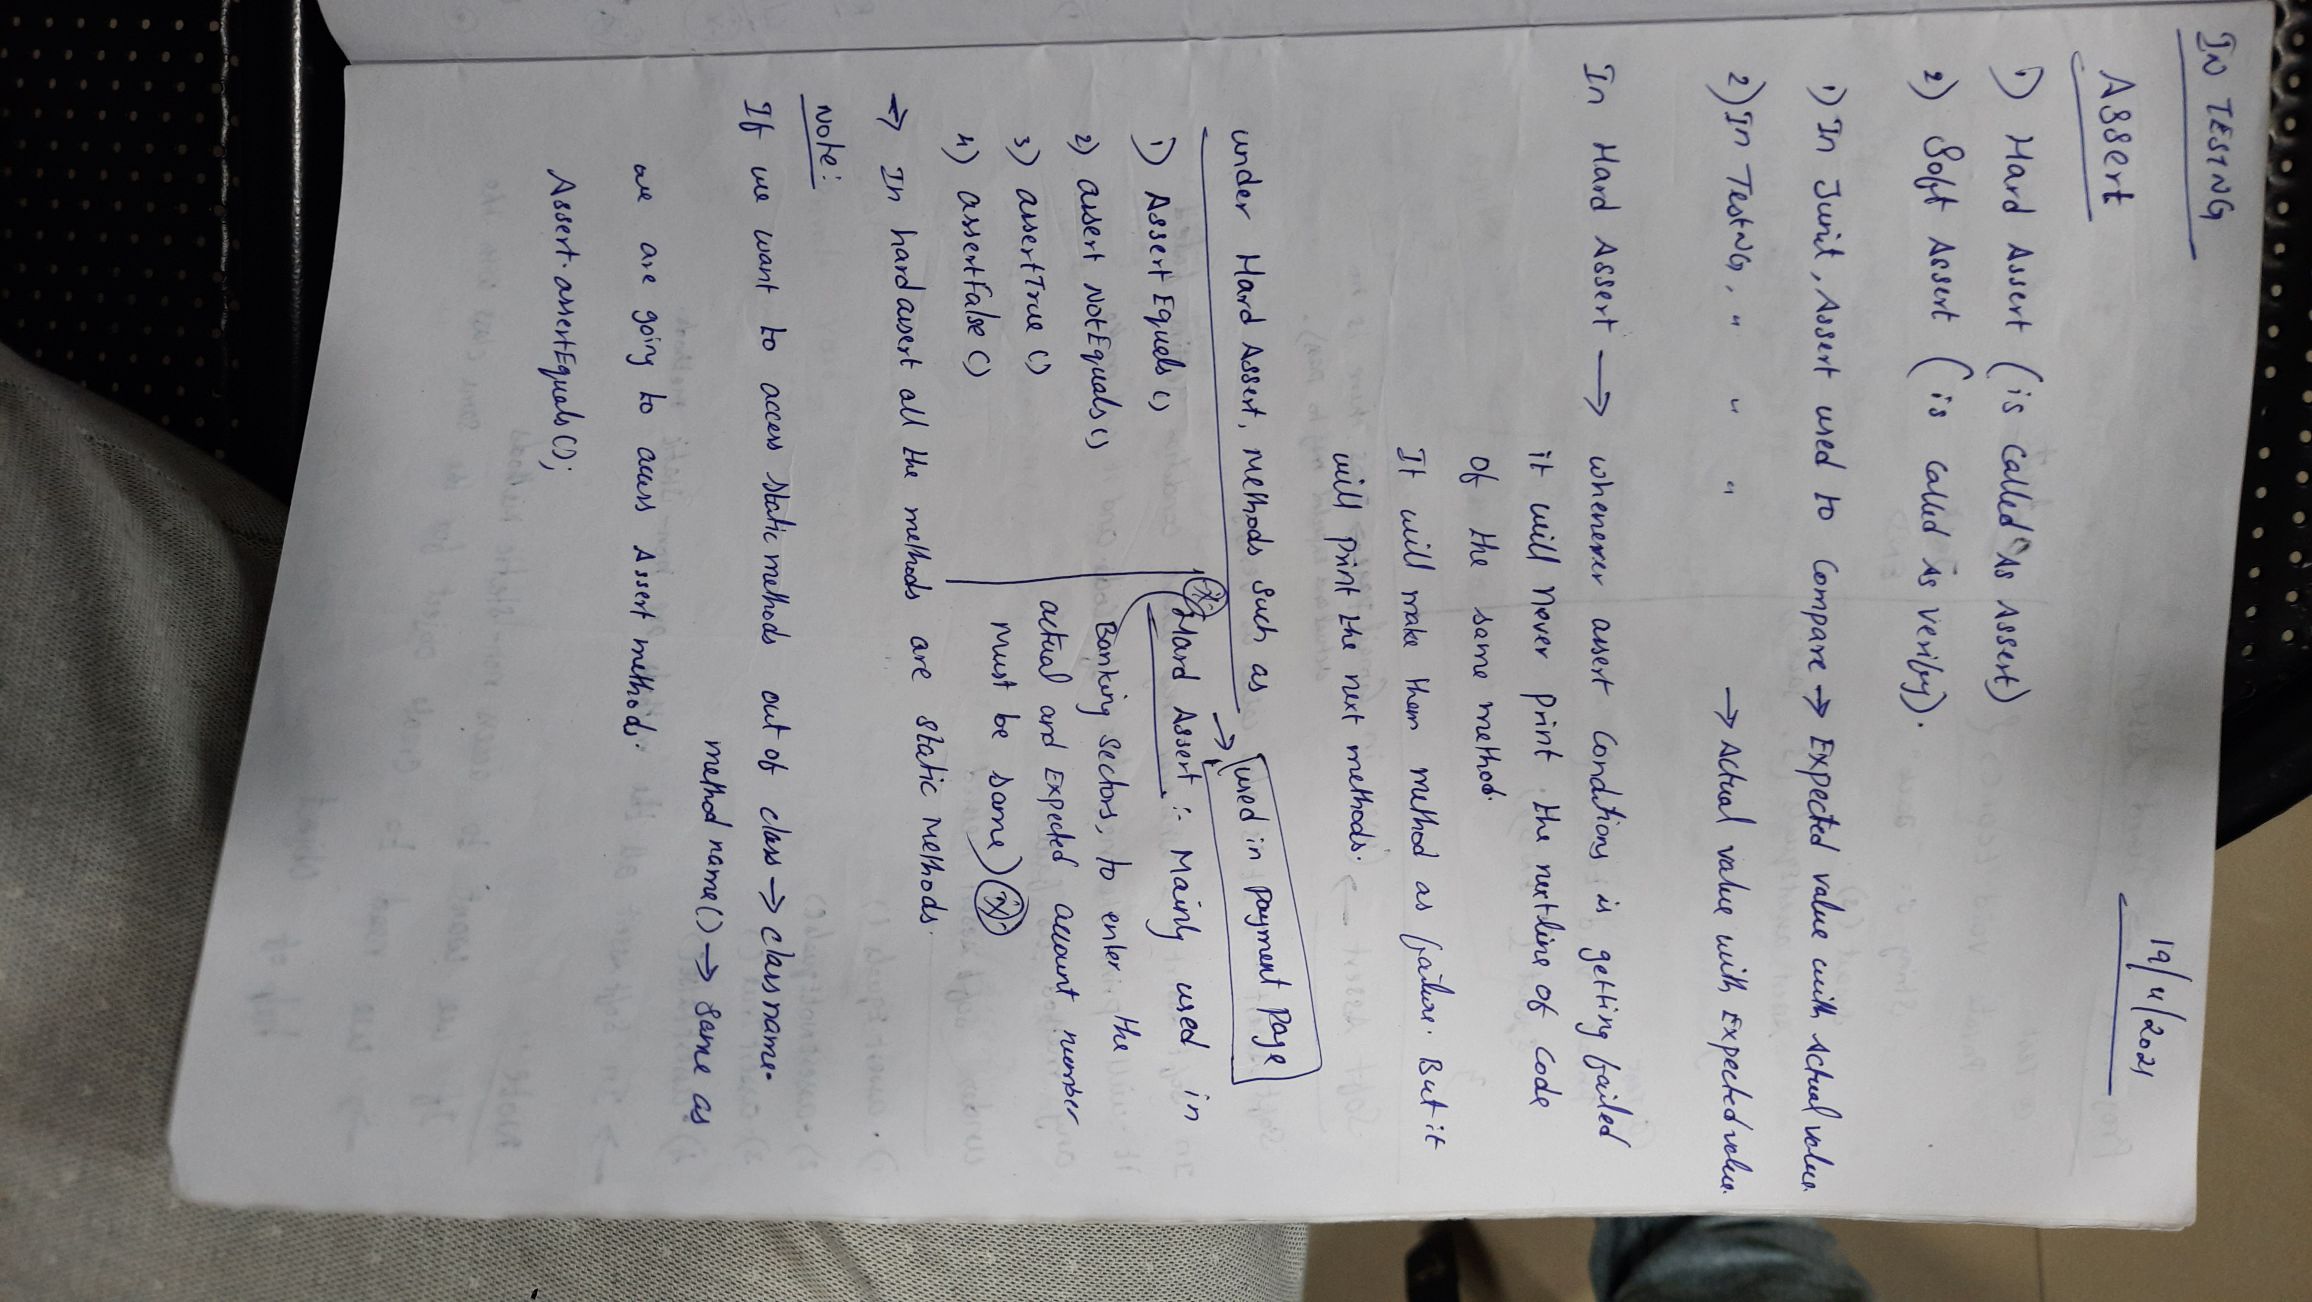 IN TESTNG
19/4/2021
Assert
1) Hard Assert (is called As Assert)
2) Soft Assert (is called As verify).
1) In Junit, Assert used to compare → Expected value with Actual value.
2) In TestNG, " " " → Actual value with Expected value.
In Hard Assert → whenever assert conditions is getting failed
it will never print the nextline of code
of the same method.
It will make them method as failure. But it
will print the next methods.
under Hard Assert, methods such as → used in payment page
1) Assert Equals ()
2) assert NotEquals ()
3) assertTrue ()
4) assertFalse ()
Hard Assert :- Mainly used in
Banking sectors, to enter the
actual and Expected account number
must be same)
→ In hard assert all the methods are static methods.
Note:
If we want to access static methods out of class → class name.
method name() → same as
we are going to access Assert method.
Assert.assertEquals();